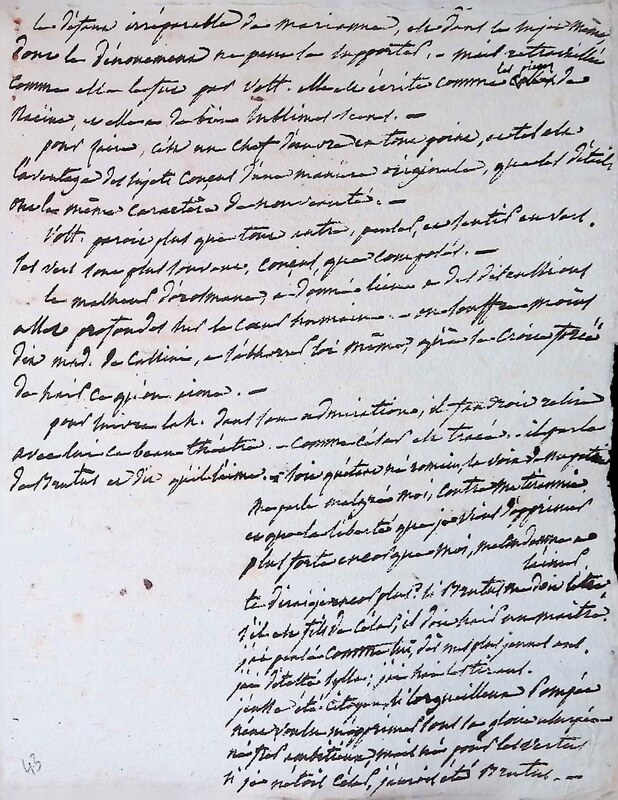 le défaut irréparable de mariamne, est dans le sujet même
dont le dénouement ne peut se supporter. - mais retravaillée
comme elle le fut par Volt. elle est écrite comme les pieces de
Racine, et elle a de bien sublimes scenes. -
pour zaire, c'est un chef d'œuvre en tout point, et tel est
l'avantage des sujets conçus d'une maniere originale, que les détails
ont le même caractere de nouveauté. -
Volt. paroit plus que tout autre, penser, et sentir en vers.
ses vers sont plus souvent, conçus, que composés. -
le malheur d'orosmane, a donné lieu a des discussions
assez profondes sur le cœur humain. - on souffre moins
de haïr ce qu'on aime. -
pour suivre Lah. dans son admiration, il faudroit relire
avec lui ce beau théatre. - comme César est tracé. - il parle
de Brutus et dit qu'il l'aime. - soit qu'étant né romain, la voix de ma patrie
me parle malgré moi, contre ma tirannie
et que la liberté que je viens d'opprimer
plus forte encor que moi, me condamne a
l'aimer
te dirai-je encor plus? si Brutus me doit l'être
s'il est fils de César, il doit haïr un maitre.
j'ai pensé comme lui, dès mes plus jeunes ans.
j'ai détesté sylla; j'ai haï les tirans.
j'eusse été citoyen, si l'orgueilleux Pompée
n'eut voulu m'opprimer sous sa gloire usurpée
né fier ambitieux, mais né pour les vertus
si je n'étois César, j'aurois été Brutus. -
43